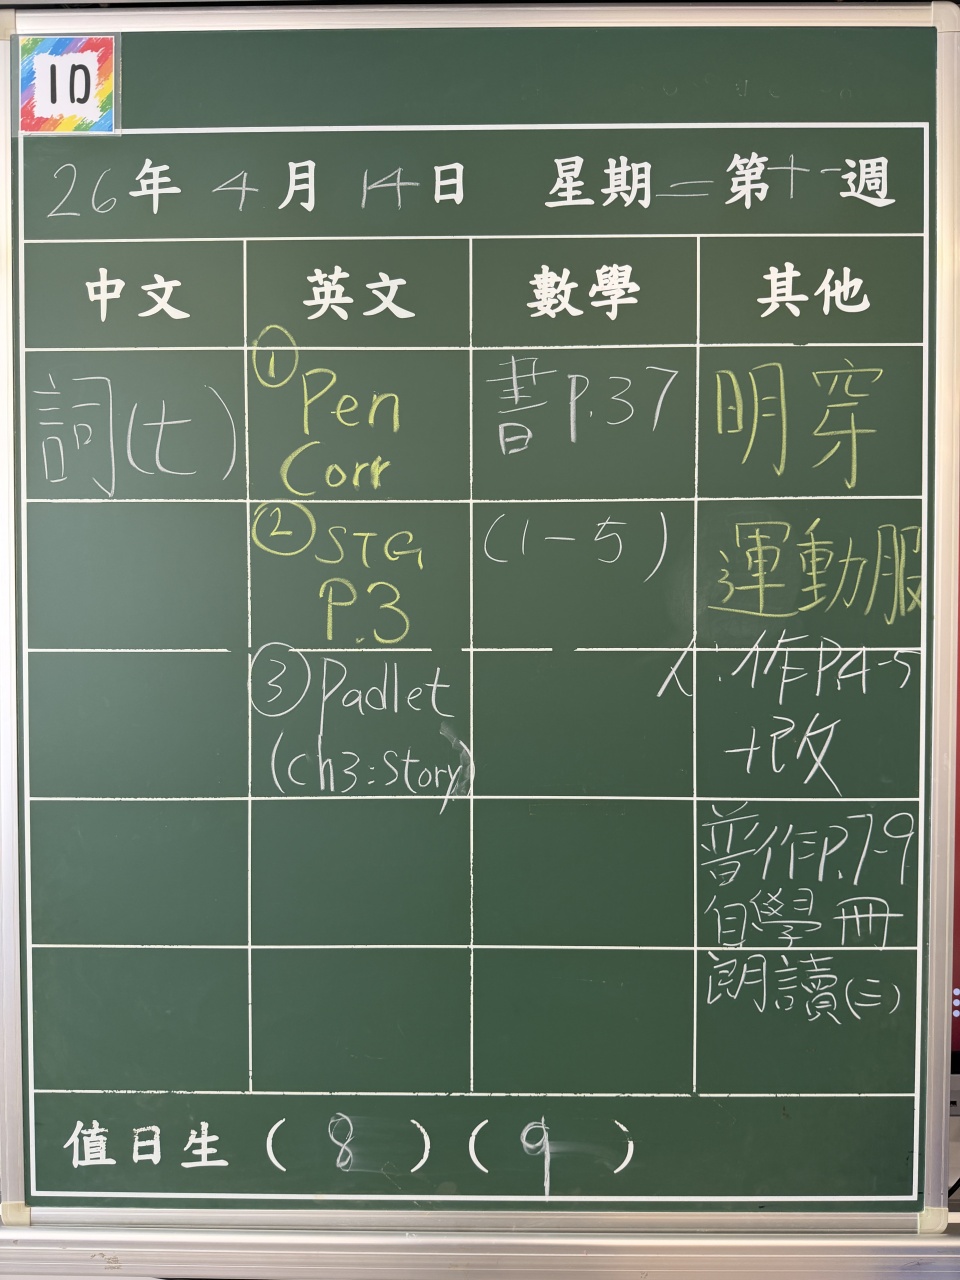 1D
26年 4月 14日 星期二 第十一週
中文 英文 數學 其他
詞(七)
① Pen
Corr
② STG
P.3
③ Padlet
(ch3:Story)
書P.37
(1-5)
明穿
運動服
人:作P.4-5
+改
普作P.7-9
自學冊
朗讀(三)
值日生 ( 8 ) ( 9 )